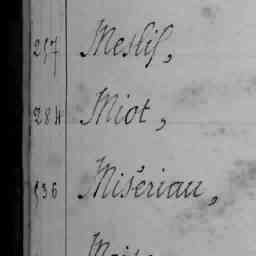 257 Meslif,
284 Miot,
536 Misériau,